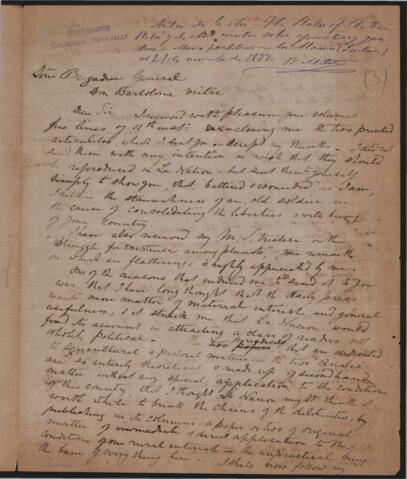 AUTOGRAFOS
COLECCION CARAVALLE
Autor de la obra "The States of the River
Plate,
el 21 de noviembre de 1877.
B. Mitre
(3)
Señor Brigadier General
Don Bartolomé Mitre
Dear Sir, I received with pleasure your esteemed
few lines of 11th inst. re-enclosing me the two printed
articles which I sent you. Accept my thanks. I did not
send them with any intention or wish that they should
be reproduced in La Nacion - but sent them to yourself
simply to show you, that battered & wounded as I am,
I retain the staunchness of an old soldier in
the cause of consolidating the liberties & well being
of your country.
I have also received my M.S. treatise on the
"Struggle for existence among plants" your remarks
on which are flattering & highly appreciated by me.
One of the reasons that induced me to send it to you
was that I have long thought that the daily press
wants more matter of material interest and general
usefulness, & it struck me that La Nacion would
find its account in attracting a class of readers not
wholly political. The two periodicals that are dedicated
to agricultural & pastoral matters - the two "Anales"
are so entirely theoretical & made up of second hand
matter without any special application to the conditions
of this country, that I thought La Nacion might think it
worth while to break the chains of the
publishing in its columns a paper or two of original
matter of immediate & direct application to the
conditions of our rural interests - the agricultural being
the base of everything here.
I shall now follow my